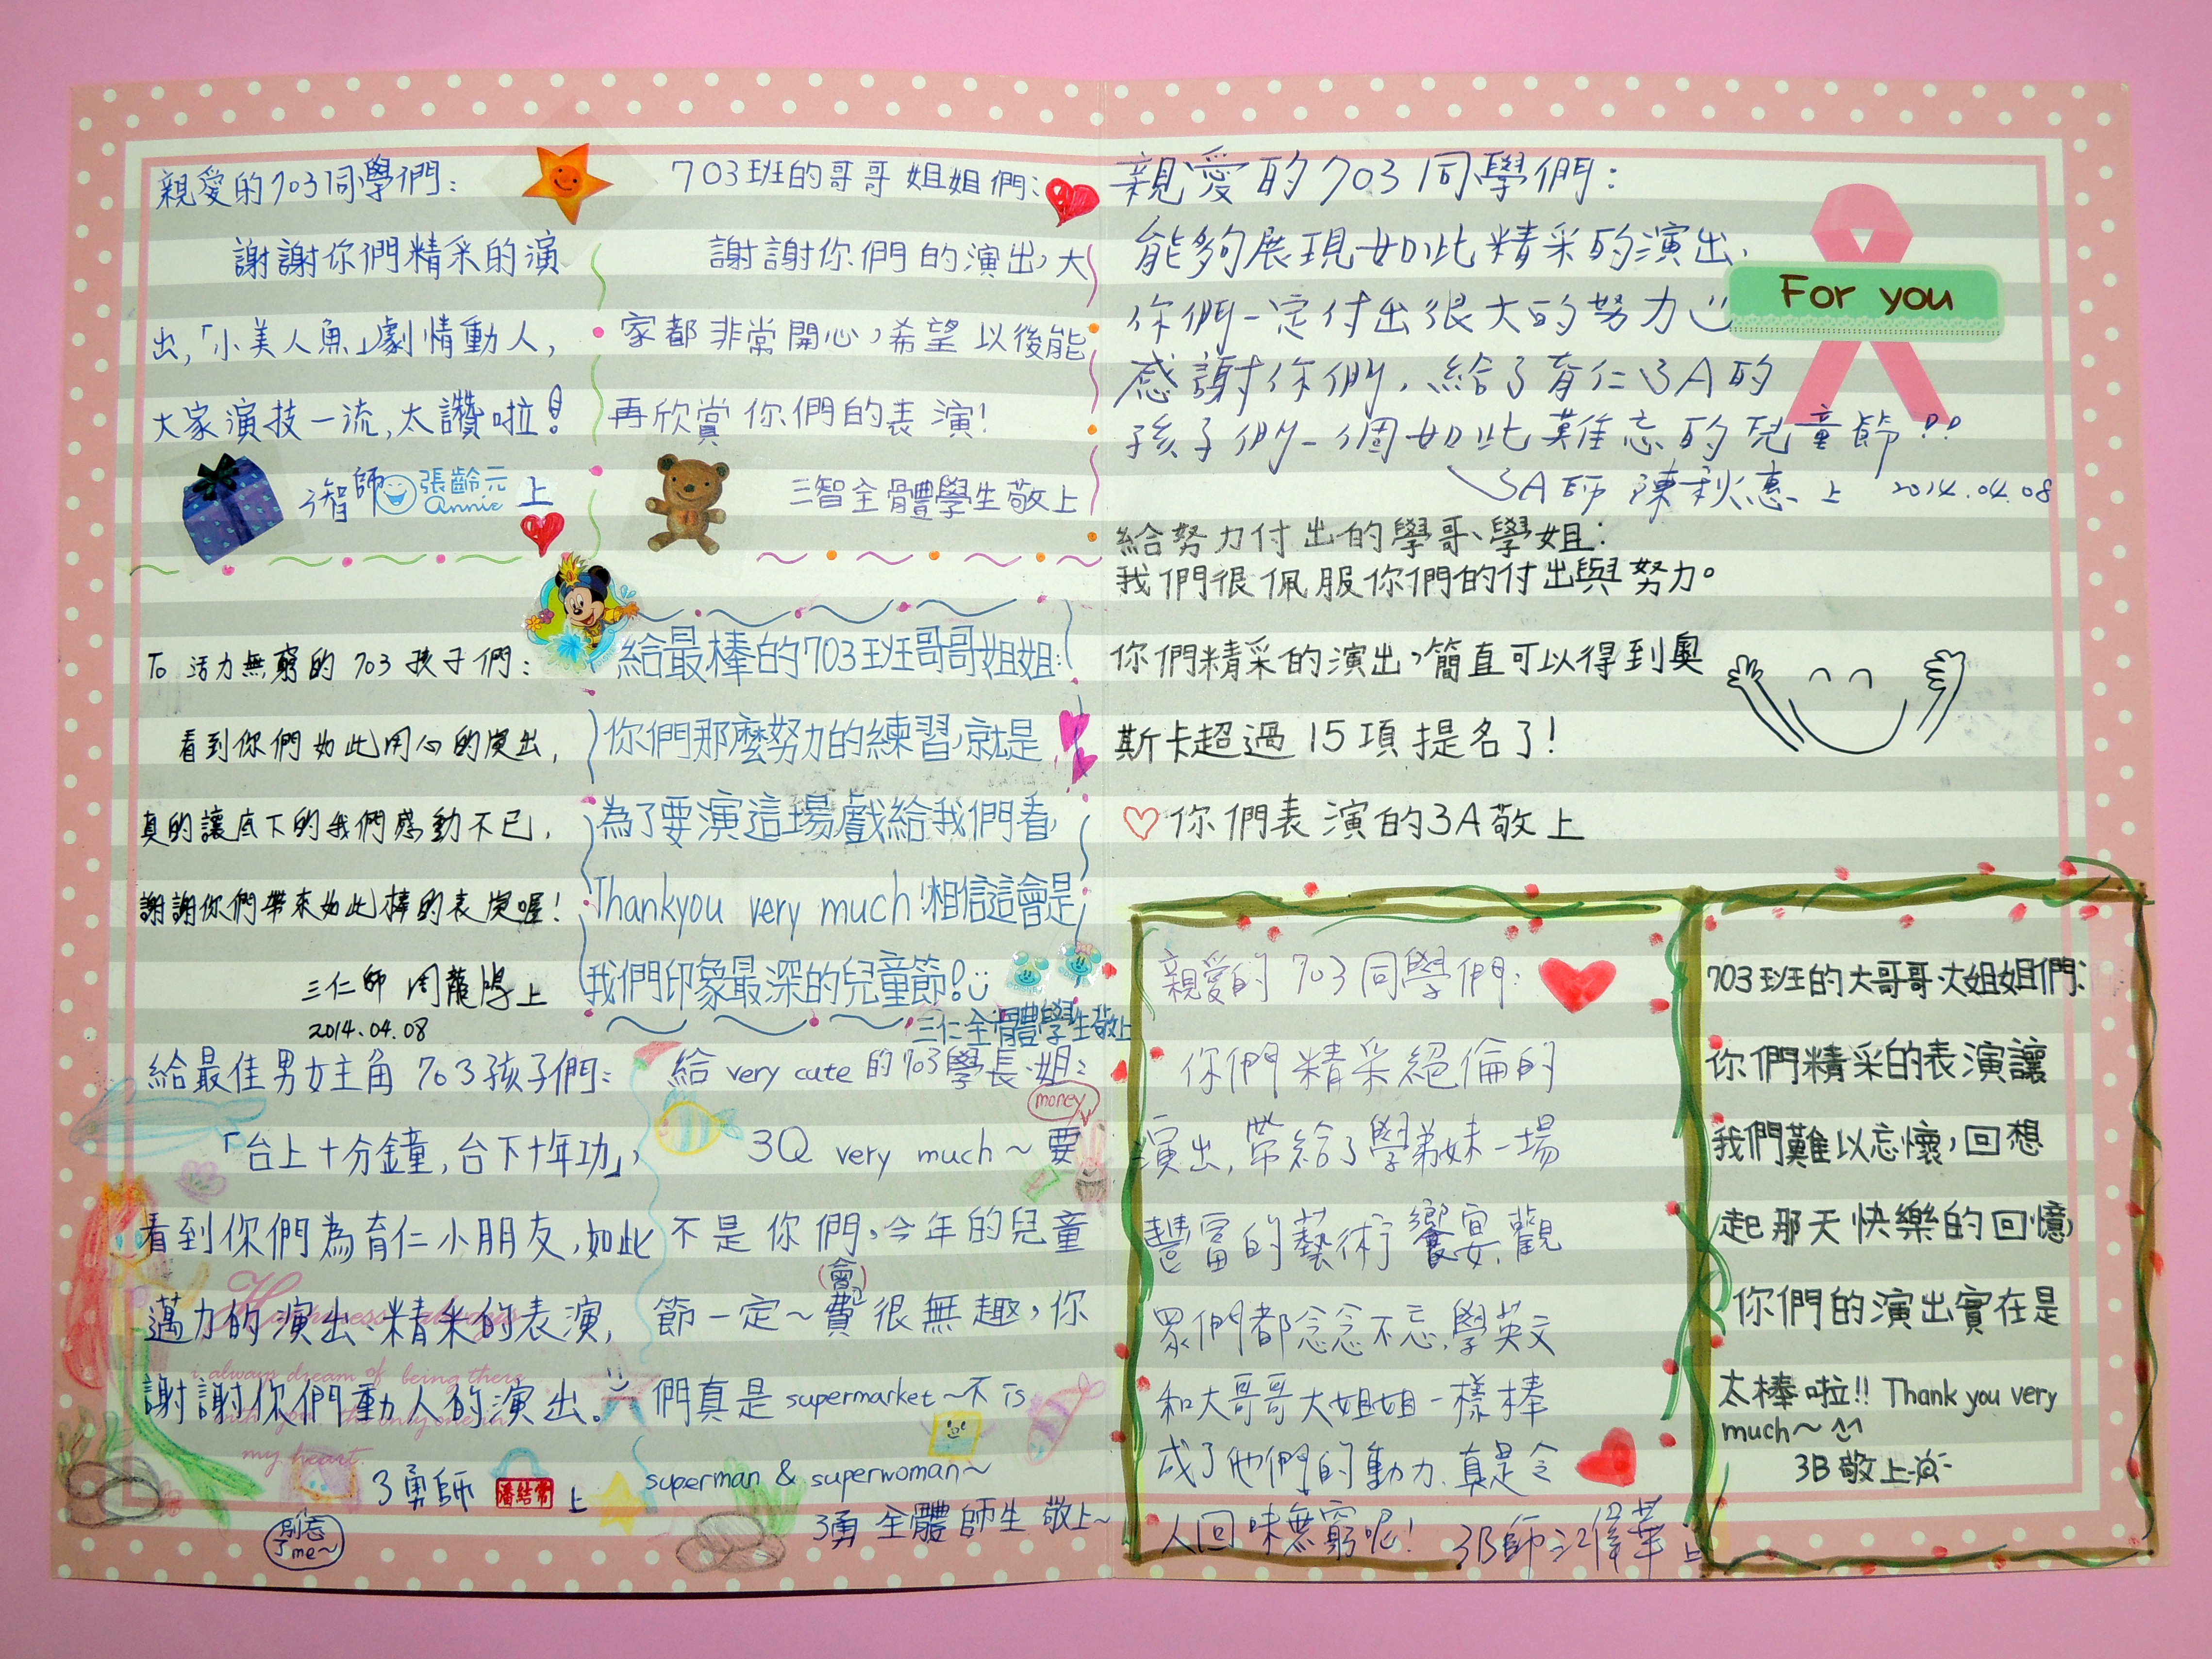 親愛的703同學們：
謝謝你們精采的演
出，「小美人魚」劇情動人，
大家演技一流，太讚啦！
3智師 張齡元 上
annie
703班的哥哥姐姐們：
謝謝你們的演出，大
家都非常開心，希望以後能
再欣賞你們的表演！
三智全體學生敬上
To 活力無窮的703孩子們：
看到你們如此用心的演出，
真的讓底下的我們感動不已，
謝謝你們帶來如此棒的表演喔！
三仁師 周 上
2014.04.08
給最棒的703班哥哥姐姐：
你們那麼努力的練習，就是
為了要演這場戲給我們看，
Thankyou very much！相信這會是
我們印象最深的兒童節！
三仁全體學生敬上
給最佳男女主角703孩子們：
「台上十分鐘，台下十年功」，
看到你們為育仁小朋友，如此
邁力的演出、精采的表演，
謝謝你們動人的演出。
3勇師 潘結常 上
別忘
了me~
Happiness always
i always dream of being there
with you the only one in
my heart.
給 very cute 的703學長、姐：
money
3Q very much~要
不是你們，今年的兒童
（會）
節一定~費很無趣，你
們真是 supermarket~不 is
superman & superwoman~
3勇 全體師生 敬上~
親愛的703同學們：
能夠展現如此精采的演出，
你們一定付出很大的努力
感謝你們，給了育仁3A的
孩子們一個如此難忘的兒童節!!
3A師 陳秋惠 上 2014.04.08
For you
給努力付出的學哥、學姐：
我們很佩服你們的付出與努力。
你們精采的演出，簡直可以得到奧
斯卡超過15項提名了！
♡你們表演的3A敬上
親愛的703同學們：
你們精采絕倫的
演出，帶給了學弟妹一場
豐富的藝術饗宴，觀
眾們都念念不忘，學英文
和大哥哥大姐姐一樣棒
成了他們的動力，真是令
人回味無窮呢！ 3B師 江偉華 上
703班的大哥哥、大姐姐們：
你們精采的表演讓
我們難以忘懷，回想
起那天快樂的回憶，
你們的演出實在是
太棒啦!! Thank you very
much~ ^^
3B敬上